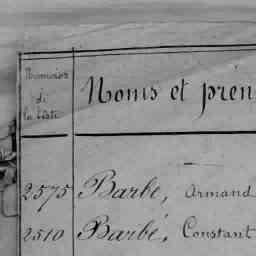 Numéros
de
la liste
Noms et prén
2575 Barbe, Armand
2510 Barbé, Constant